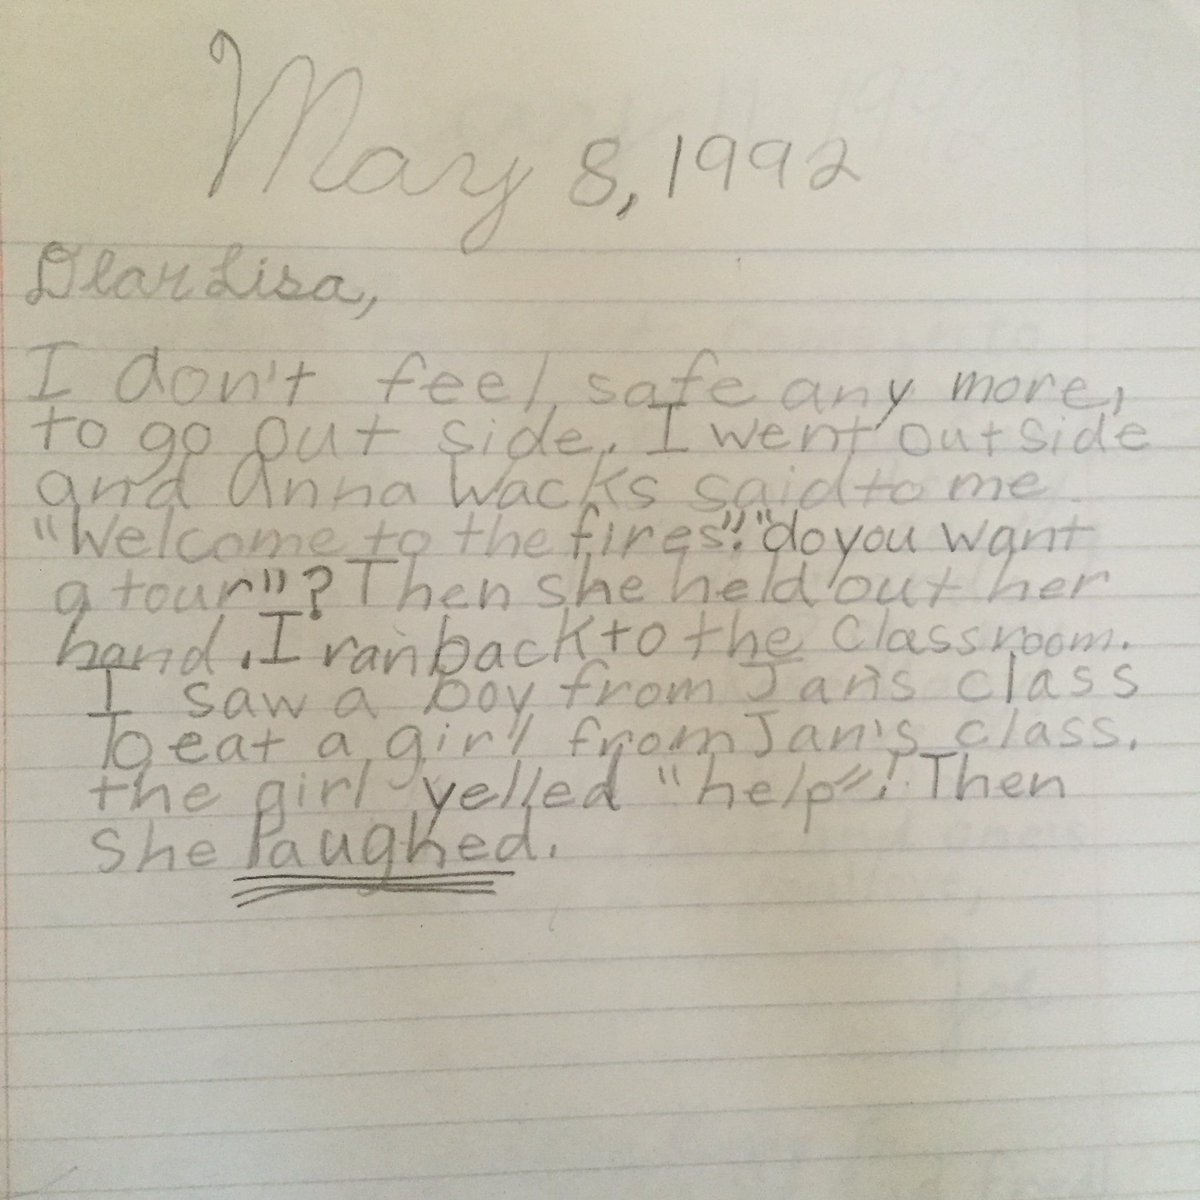 May 8, 1992
Dear Lisa,
I don't feel safe any more,
to go out side. I went out side
and Anna Wacks said to me
"Welcome to the fires". "do you want
a tour"? Then she held out her
hand. I ran back to the classroom.
I saw a boy from Jan's class
beat a girl from Jan's class.
the girl yelled "help"! Then
she laughed.